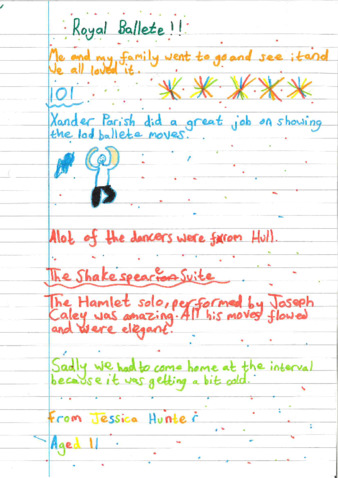 Royal Ballete!!
Me and my family went to go and see it and
We all loved it.
101
Xander Parish did a great job on showing
the 101 ballete moves.
Alot of the dancers were from Hull.
The Shakespeare Suite
The Hamlet solo, performed by Joseph
Caley was amazing. All his moves flowed
and were elegant.
Sadly we had to come home at the interval
because it was getting a bit cold.
From Jessica Hunter
Aged 11